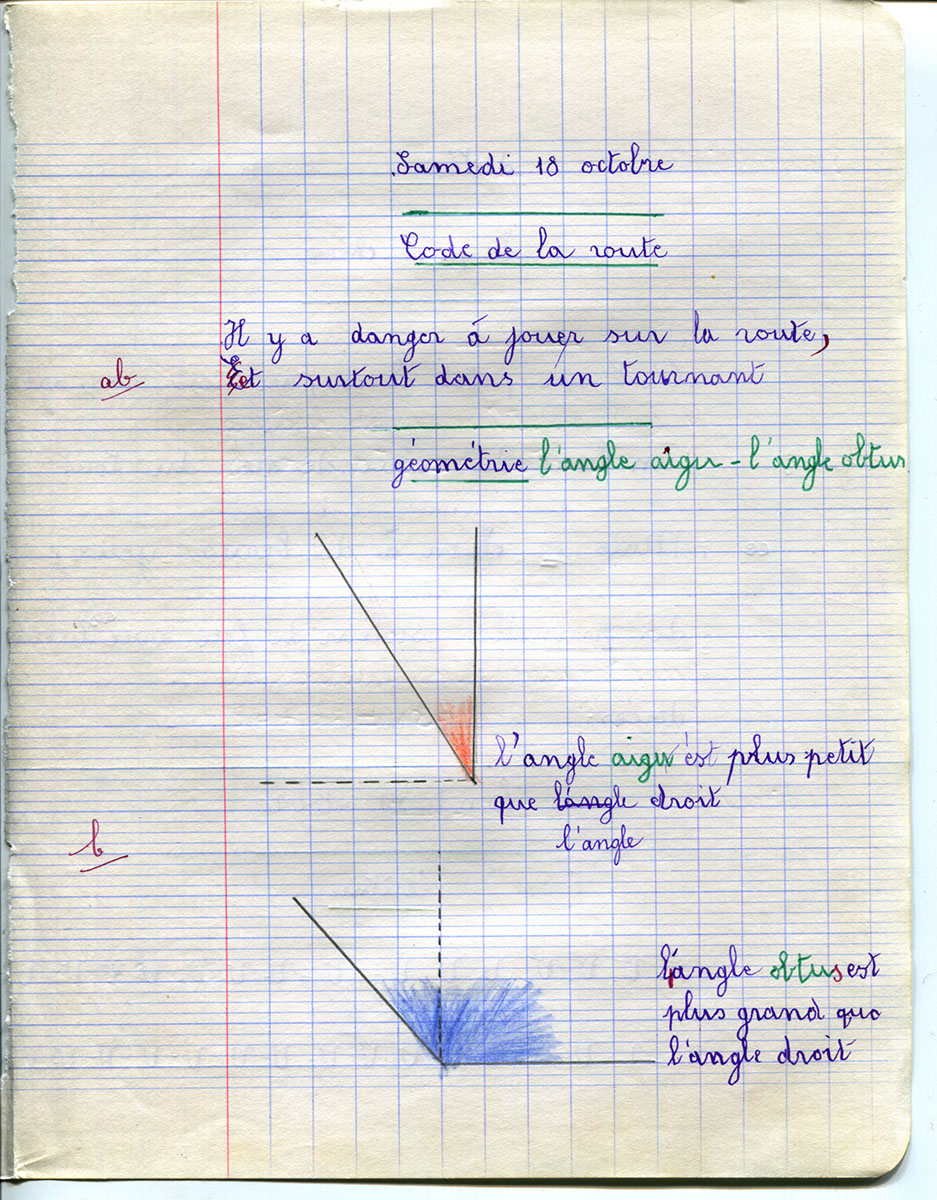 Samedi 18 octobre
Code de la route
Il y a danger à jouer sur la route,
ab
et surtout dans un tournant
géométrie l'angle aigu - l'angle obtus
l'angle aigu est plus petit
que l'angle droit
l'angle
b
l'angle obtus est
plus grand que
l'angle droit